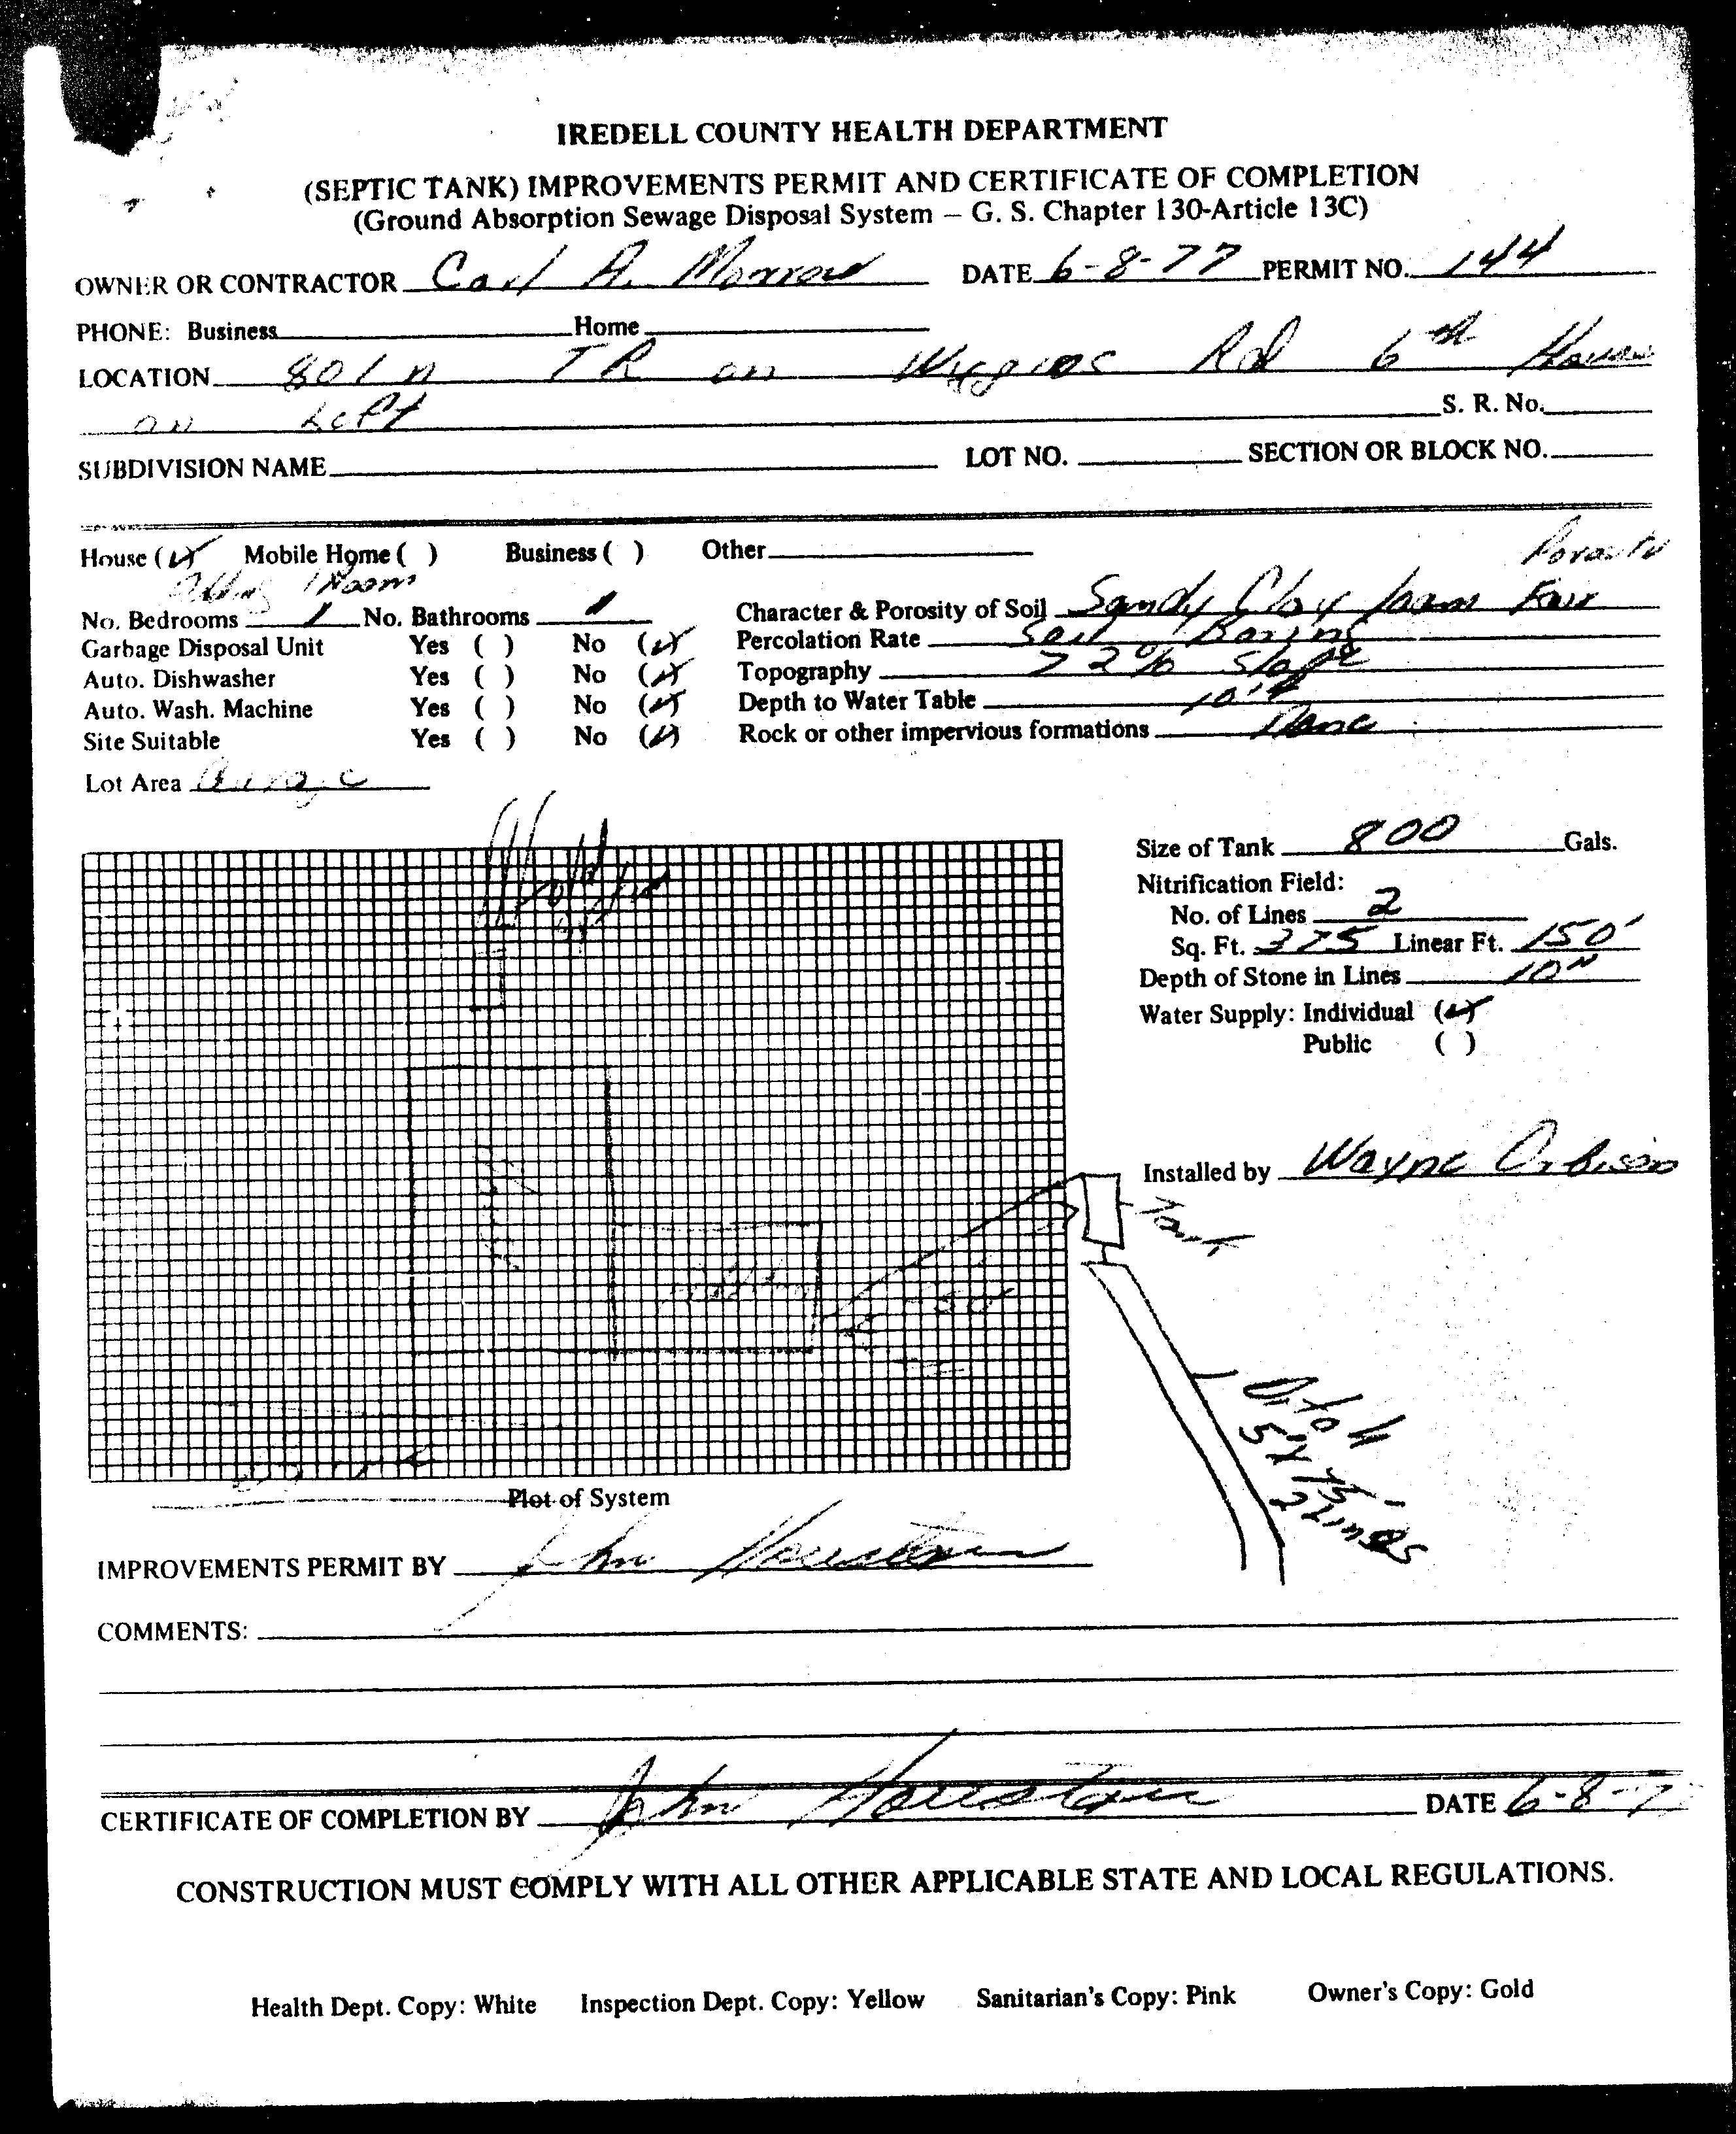 IREDELL COUNTY HEALTH DEPARTMENT
(SEPTIC TANK) IMPROVEMENTS PERMIT AND CERTIFICATE OF COMPLETION
(Ground Absorption Sewage Disposal System – G. S. Chapter 130-Article 13C)
OWNER OR CONTRACTOR Carl A. Morrow DATE 6-8-77 PERMIT NO. 144
PHONE: Business Home
LOCATION 801 N TR on Wiggins Rd 6th House
on Left S. R. No.
SUBDIVISION NAME LOT NO. SECTION OR BLOCK NO.
House (✓) Mobile Home ( ) Business ( ) Other
adding 1 Room
No. Bedrooms 1 No. Bathrooms
Character & Porosity of Soil Sandy Clay loam Fair
Garbage Disposal Unit Yes ( ) No (✓)
Percolation Rate Soil Boring
Auto. Dishwasher Yes ( ) No (✓)
Topography > 2% Slope
Auto. Wash. Machine Yes ( ) No (✓)
Depth to Water Table 10'+
Site Suitable Yes ( ) No (✓)
Rock or other impervious formations None
Lot Area
Size of Tank 800 Gals.
Nitrification Field:
No. of Lines 2
Sq. Ft. 375 Linear Ft. 150'
Depth of Stone in Lines 10"
Water Supply: Individual (✓)
Public ( )
Installed by Wayne Orbison
Tank
Ditch
5' X 75'
2 Lines
Plot of System
IMPROVEMENTS PERMIT BY John Houston
COMMENTS:
CERTIFICATE OF COMPLETION BY John Houston DATE 6-8-7
CONSTRUCTION MUST COMPLY WITH ALL OTHER APPLICABLE STATE AND LOCAL REGULATIONS.
Health Dept. Copy: White Inspection Dept. Copy: Yellow Sanitarian's Copy: Pink Owner's Copy: Gold